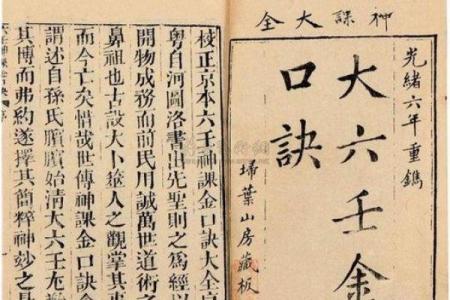 神課大全
光緒六年重鐫
大六壬金
口訣
埽葉山房藏板
校正京本六壬神課金口訣大全
粤自河圖洛書出先聖則之為經以
開物成務而前民用誠萬世道術之
鼻祖也古設大卜簭人之觀掌其事
而今亡矣惜哉世傳神課金口訣
謂述自孫氏臏臏始淸大六壬尤
其博而弗約遂擇其簡粹神妙之